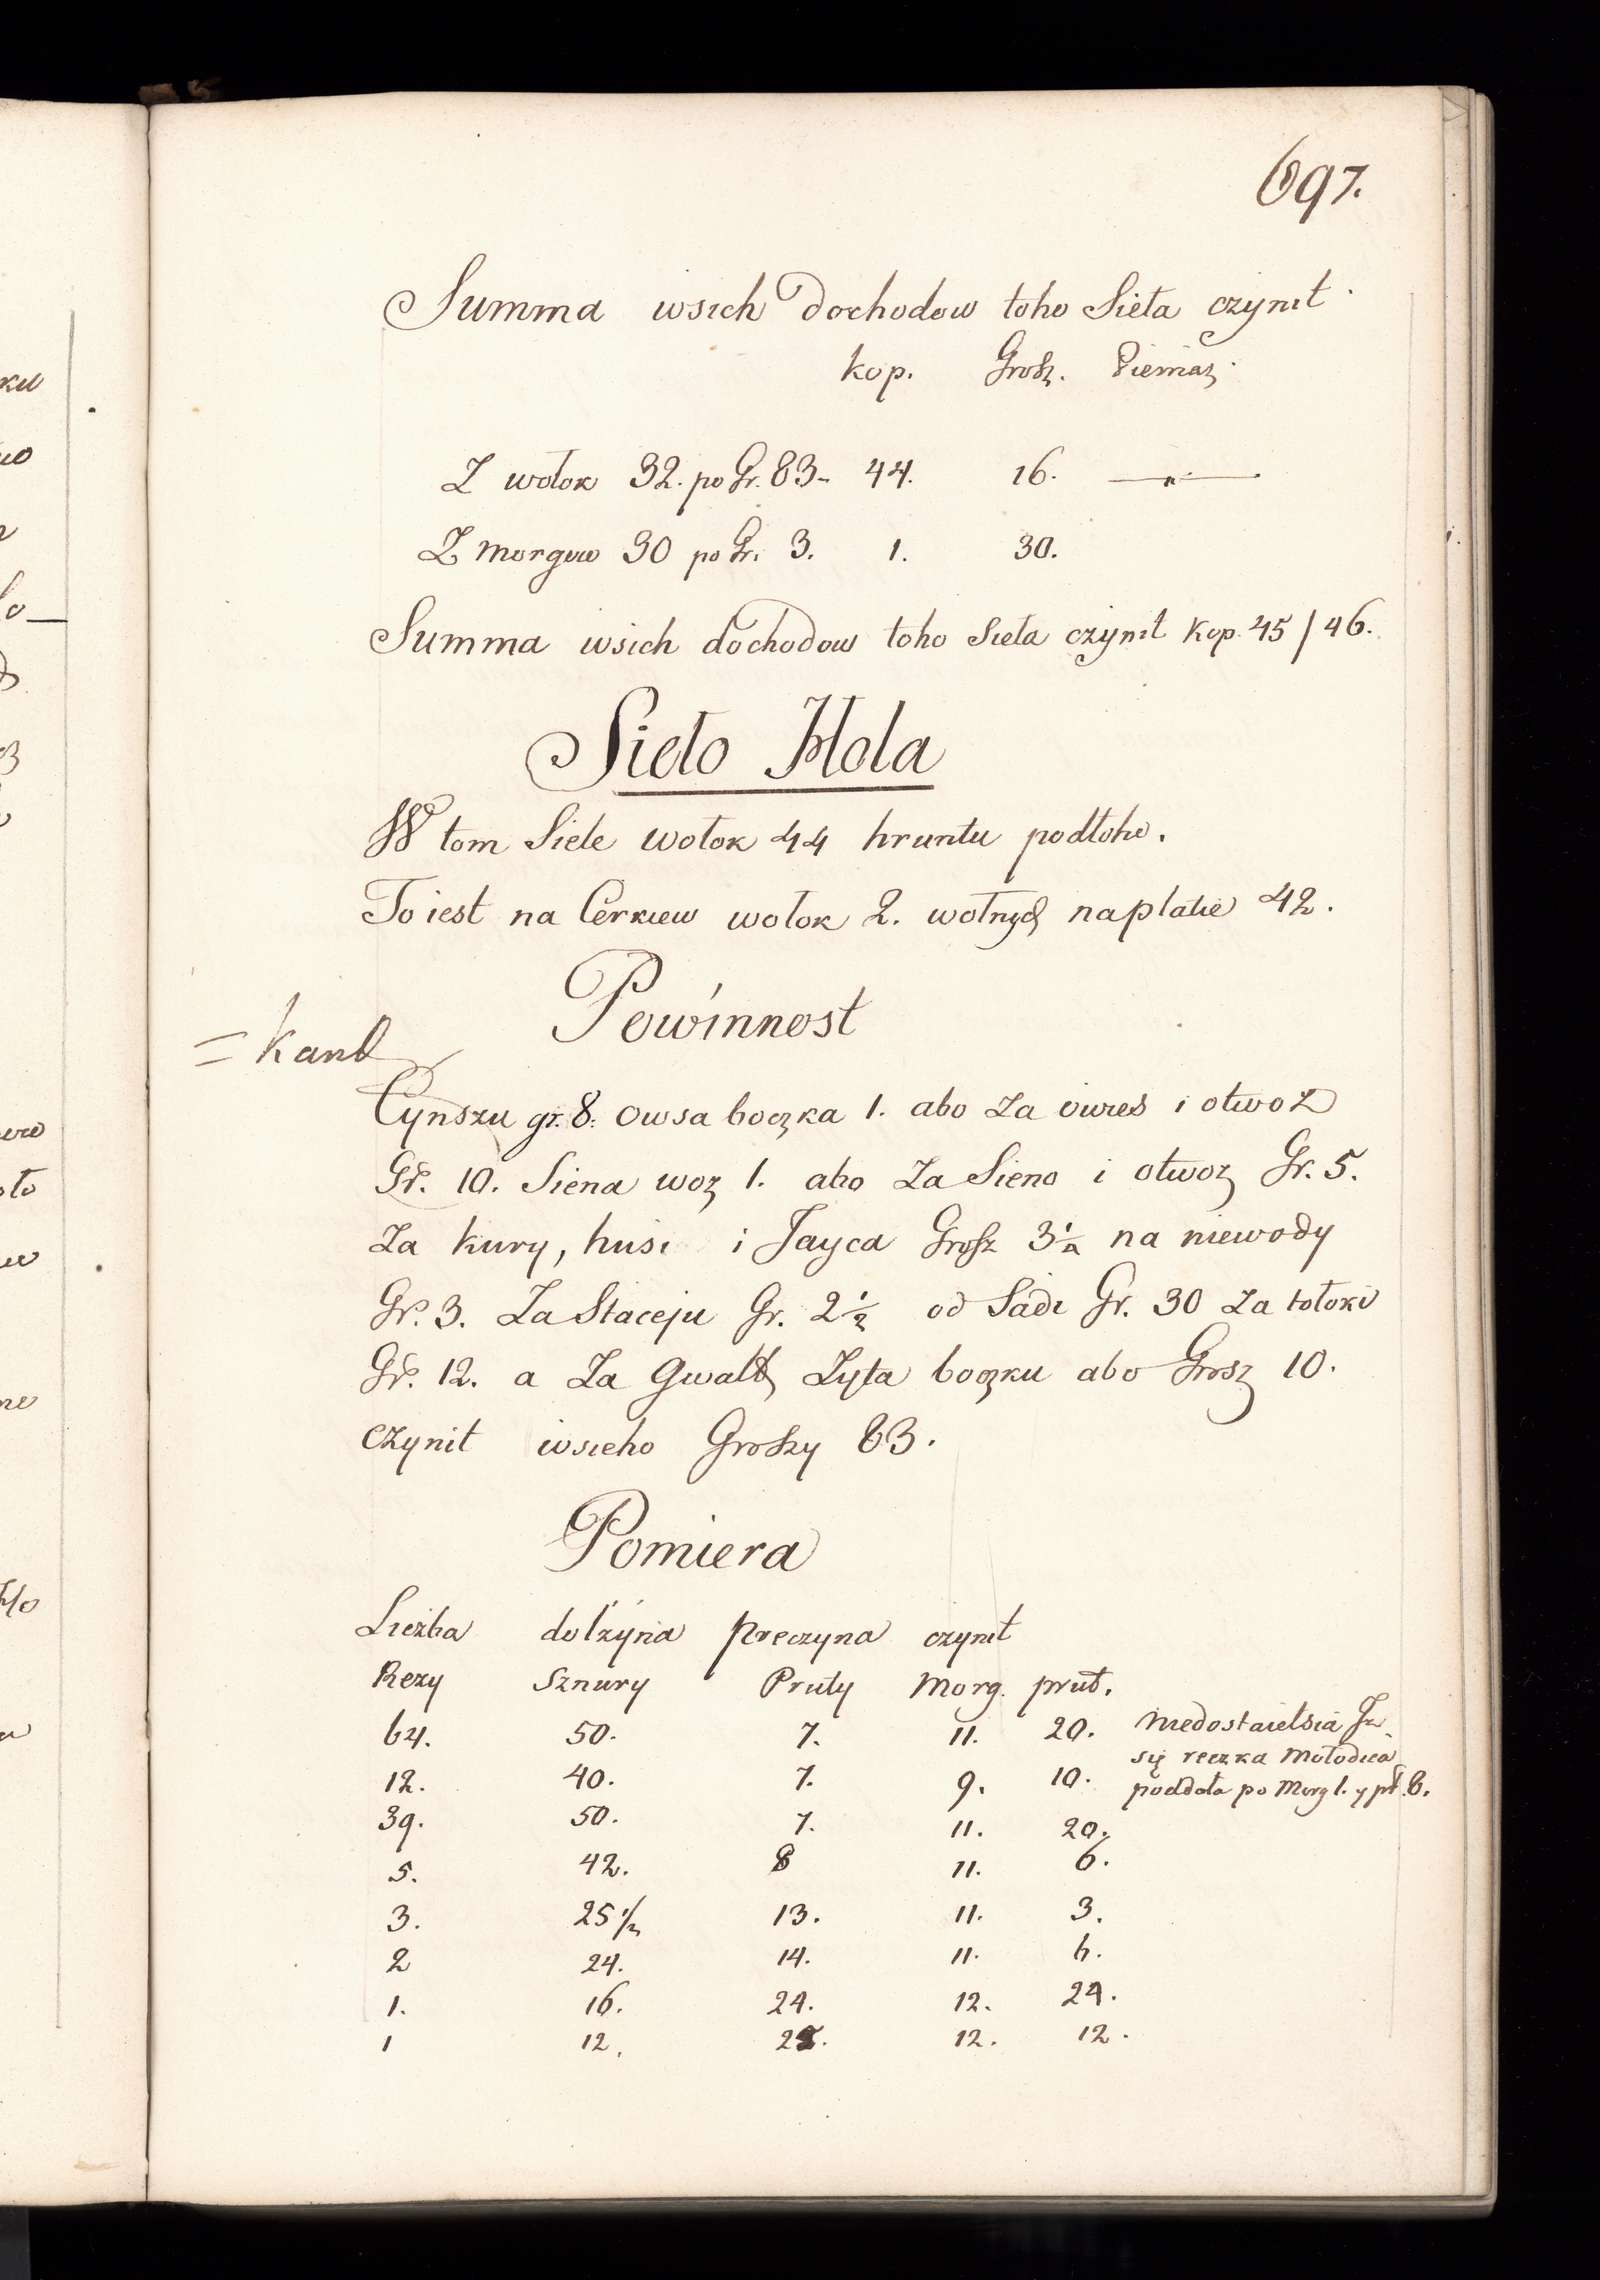 697.
Summa wsich dochodow toho Sieła czynit
kop. Grosz. Pieniaz
Z wołok 32. po Gr. 83 - 44. 16. —
Z morgow 30 po Gr. 3. 1. 30.
Summa wsich dochodow toho Sieła czynit kop. 45 / 46.
Sieło Hola
W tom Siele wołok 44 hruntu podłoho.
To iest na Cerkiew wołok 2. wołnych na płatie 42.
Powinnost
Cynszu gr. 8. Owsa boczka 1. abo za owies i otwoz
Gr. 10. Siena woz 1. abo za Sieno i otwoz Gr. 5.
za kury, husi i Jayca Grosz 3½ na niewody
Gr. 3. Za Staceju Gr. 2½ od Sadi Gr. 30 za tołoki
Gr. 12. a za gwałt Zyta boczku abo Grosz 10.
czynit wsieho Groszy 83.
Pomiera
Liczba dołzyna preczyna czynit
Rezy Sznury Pruty Morg. prut.
64. 50. 7. 11. 20. niedostaielsia
się reczka Mołodica
12. 40. 7. 9. 10. poddała po Morg 1. y pt. 8.
39. 50. 7. 11. 20.
5. 42. 8 11. 6.
3. 25½ 13. 11. 3.
2 24. 14. 11. 6.
1. 16. 24. 12. 24.
1 12. 12. 12.